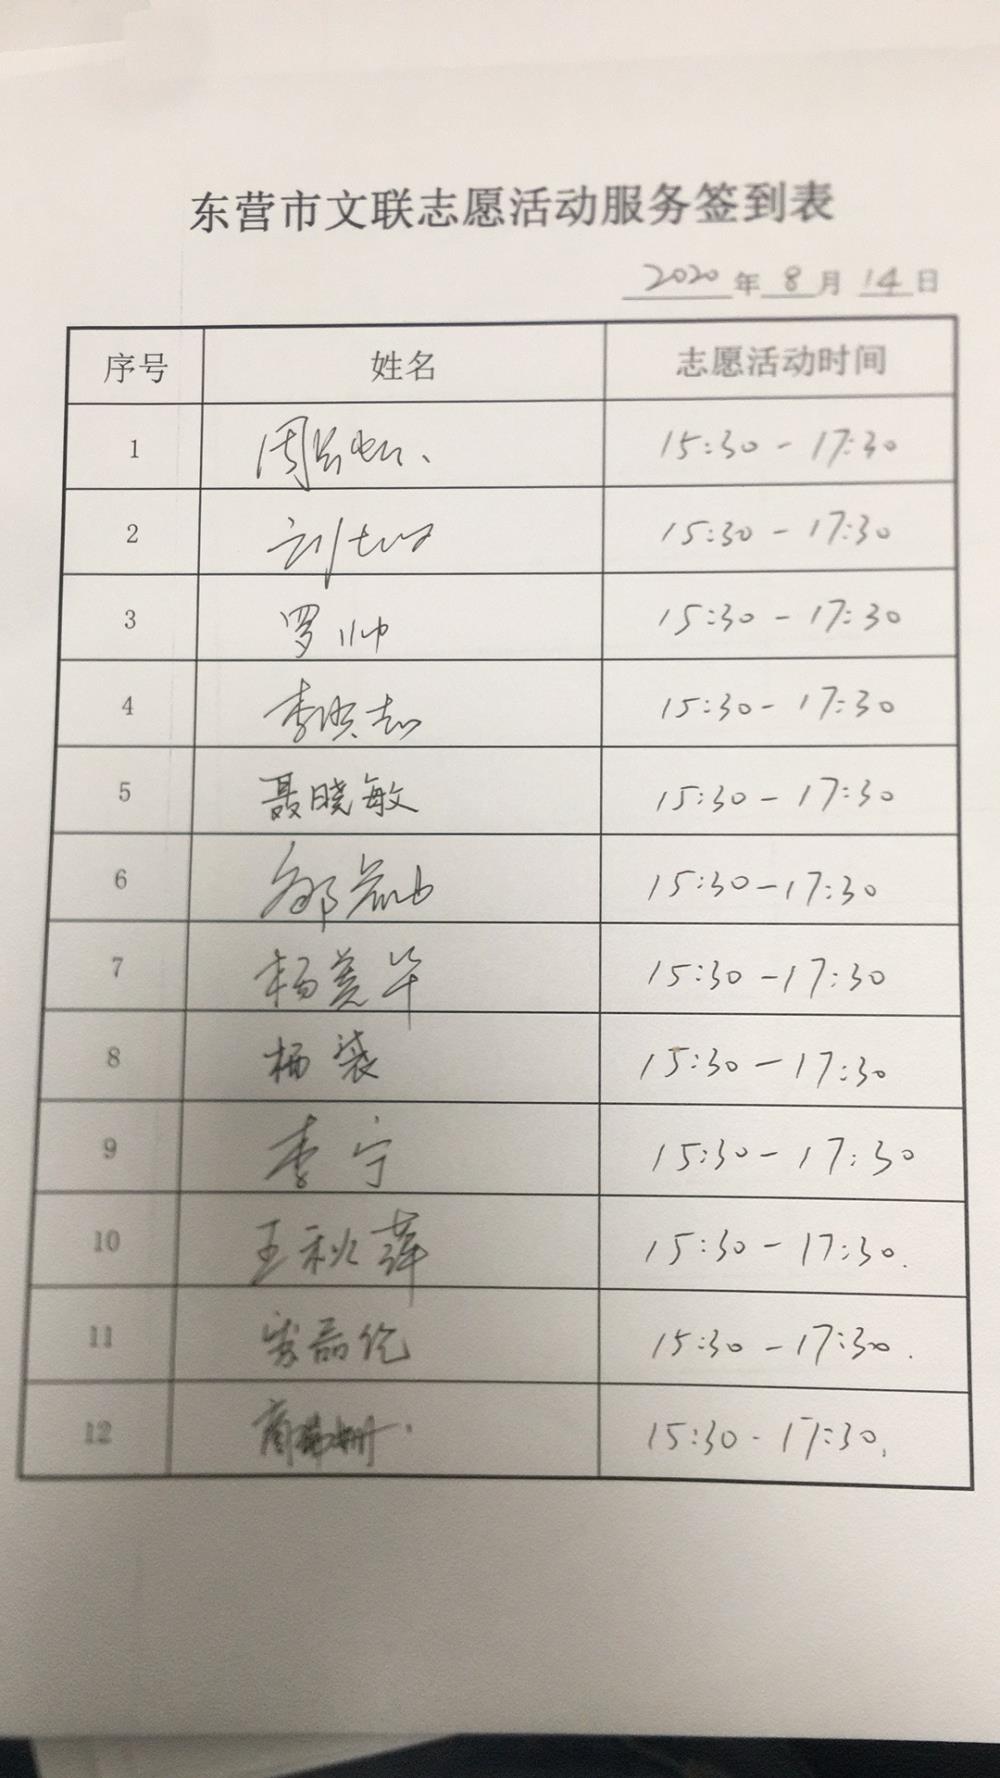 东营市文联志愿活动服务签到表
2020年8月14日
序号 姓名 志愿活动时间
1 15:30-17:30
2 刘 15:30-17:30
3 罗帅 15:30-17:30
4 李洪志 15:30-17:30
5 聂晓敏 15:30-17:30
6 邵 15:30-17:30
7 杨美华 15:30-17:30
8 15:30-17:30
9 李宁 15:30-17:30
10 王秋萍 15:30-17:30.
11 15:30-17:30.
12 商 15:30-17:30.